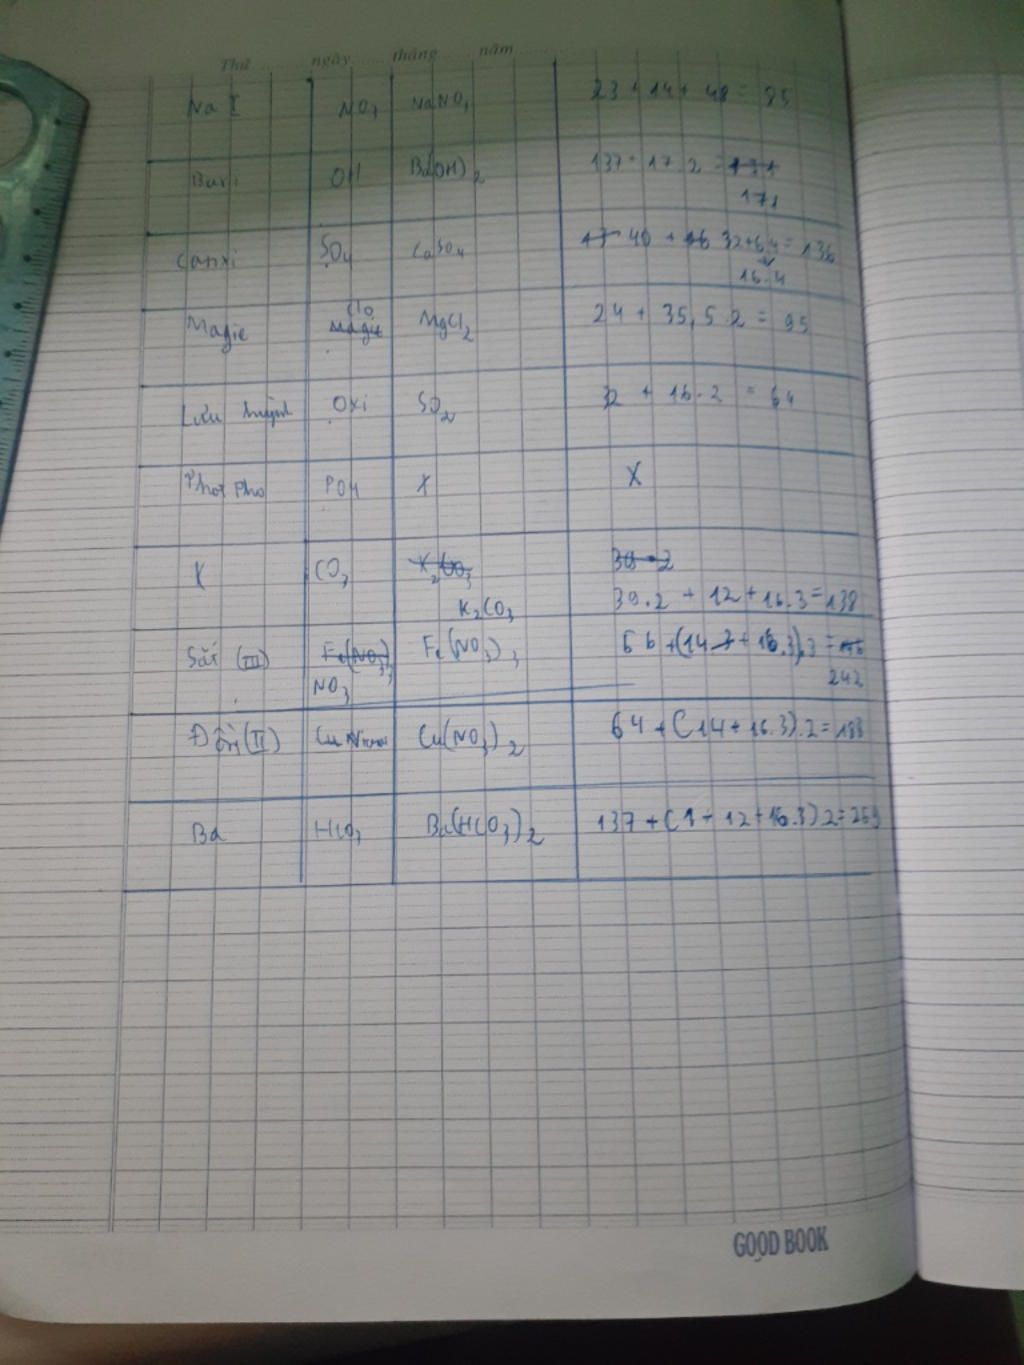 Thứ ngày tháng năm
Na I NO3 NaNO3 23 + 14 + 48 = 85
Bari OH Ba(OH)2 137 + 17.2 = 171
171
Canxi SO4 CaSO4 40 + 32+64 = 136
16.4
Clo
Magie Magie MgCl2 24 + 35,5.2 = 95
Lưu huỳnh Oxi SO2 32 + 16.2 = 64
Phot pho PO4 X X
K CO3 K2CO3 39.2
K2CO3 39.2 + 12 + 16.3 = 138
Sắt (III) Fe(NO3)3 Fe(NO3)3 56 + (14 + 16.3).3 =
NO3 242
Đồng (II) Cu Cu(NO3)2 64 + (14 + 16.3).2 = 188
Ba HCO3 Ba(HCO3)2 137 + (1 + 12 + 16.3)2 = 259
GOOD BOOK